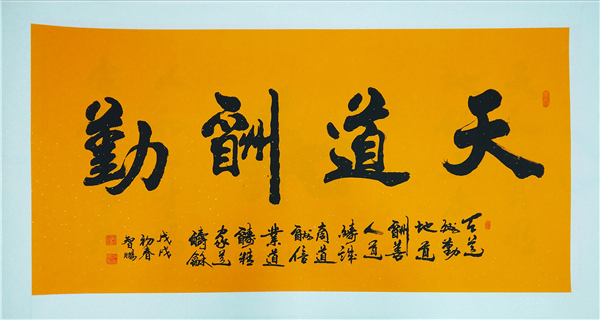 天道酬勤
天道
酬勤
地道
酬善
人道
醻誠
商道
酬信
業道
醻精
家道
醻龢
戊戌
初春
智鵬